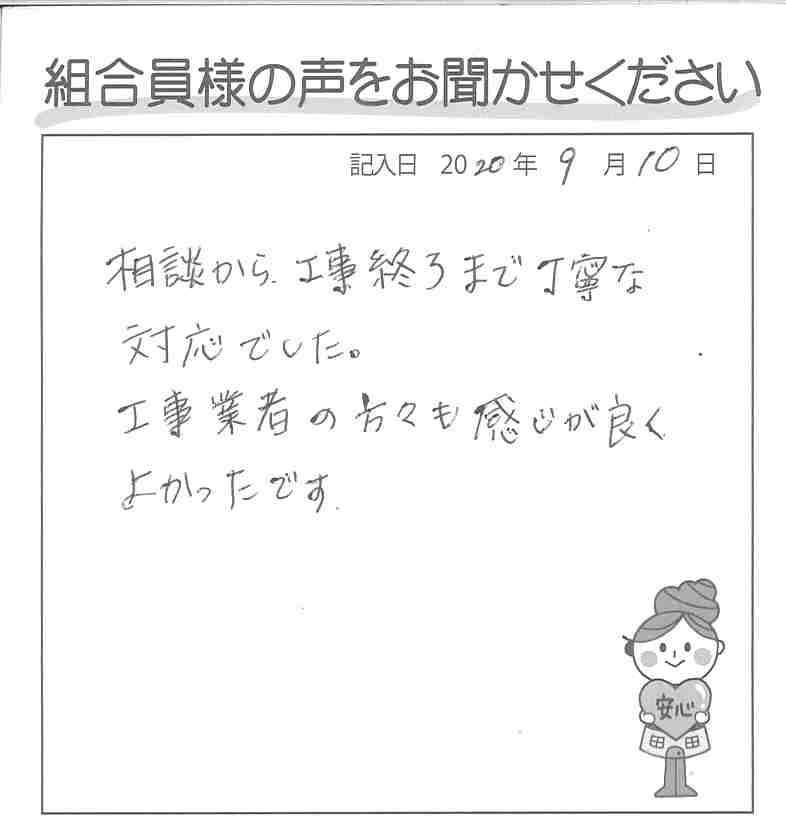 組合員様の声をお聞かせください
記入日 2020年 9月10日
相談から、工事終了まで丁寧な
対応でした。
工事業者の方々も感じが良く
よかったです.
安心